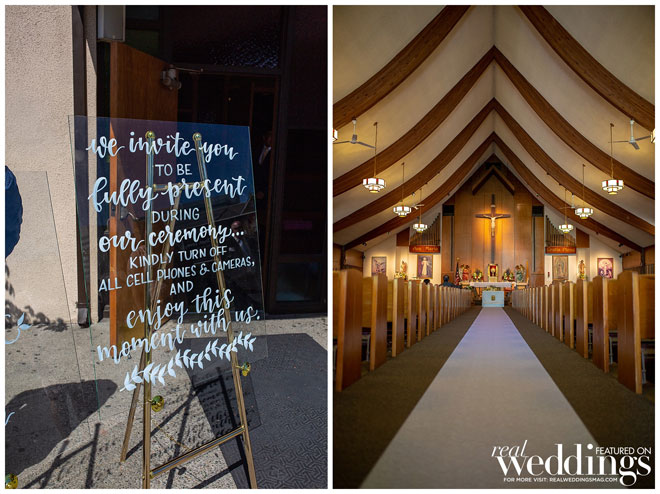 we invite you
TO BE
fully present
DURING
our ceremony...
KINDLY TURN OFF
ALL CELL PHONES & CAMERAS,
AND
enjoy this
moment with us.
real
weddings
FEATURED ON
FOR MORE VISIT: REALWEDDINGSMAG.COM